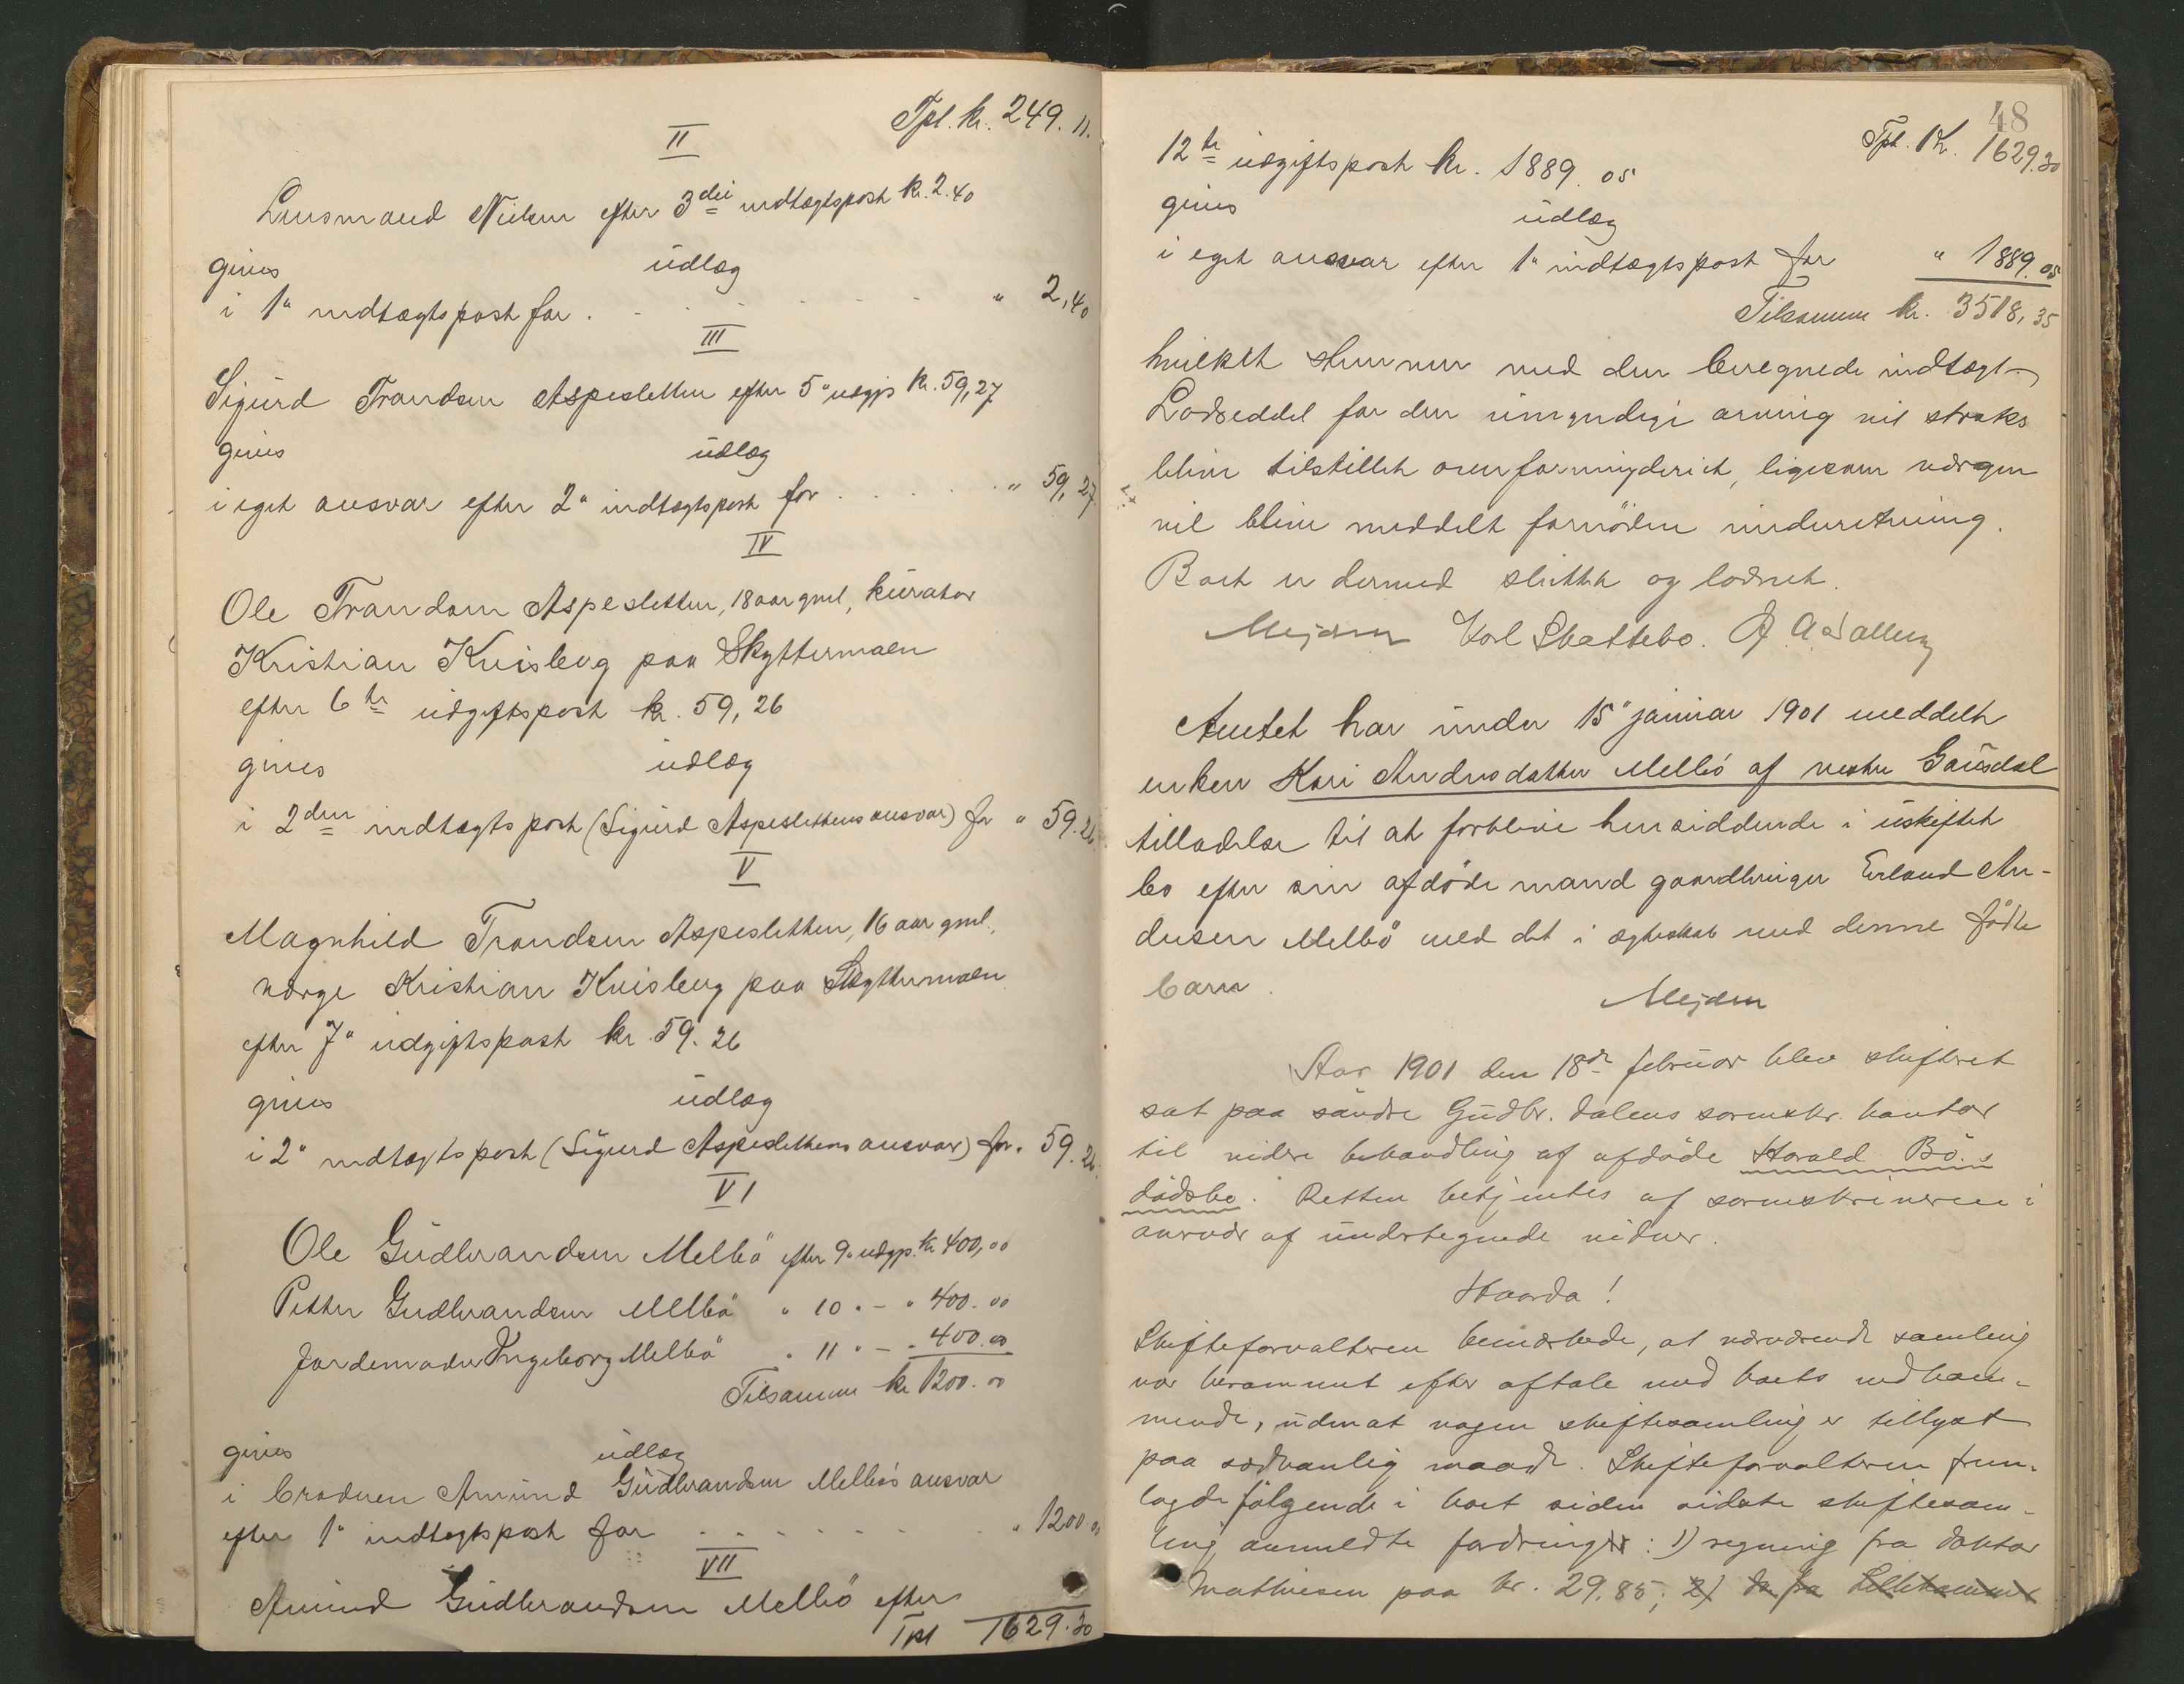 Tpl. kr. 249.11.
II
Lensmand Nielsen efter 3die indtægtspost kr. 2.40
gives udlæg
i 1" indtægtspost for . . . . . . " 2,40
III
Sigurd Trondsen Aspesletten efter 5" udgp kr. 59,27
gives udlæg
i eget ansvar efter 2" indtægtspost for . . . . . " 59,27
IV
Ole Trondsen Aspesletten, 18 aar gml, kurator
Kristian Kvisberg paa Skyttermoen
efter 6te udgiftspost kr. 59,26
gives udlæg
i 2den indtægtspost (Sigurd Aspeslettens ansvar) for " 59.26
V
Magnhild Trondsen Aspesletten, 16 aar gml.,
værge Kristian Kvisberg paa Skyttermoen
efter 7" udgiftspost kr. 59.26
gives udlæg
i 2" indtægtspost (Sigurd Aspeslettens ansvar) for " 59.26
VI
Ole Gudbrandsen Melbö efter 9" udgp. kr 400,00
Petter Gudbrandsen Melbö " 10 " - " 400.00
Jordemoder Ingeborg Melbö " 11 " - " 400.00
Tilsammen kr 1200.00
gives udlæg
i broderen Amund Gudbrandsen Melbös ansvar
efter 1" indtægtspost for . . . . . . . " 1200.00
VII
Amund Gudbrandsen Melbö efter
Tpl 1629.30
48
Tpl. Kr. 1629.30
12te udgiftspost kr. 1889.05
gives udlæg
i eget ansvar efter 1" indtægtspost for " 1889.05
Tilsammen kr. 3518,35
hvilket stemmer med den beregnede indtægt.
Lodseddel for den umyndige arving vil straks
blive tilstillet overformynderiet, ligesom værgen
vil blive meddelt fornöden underretning.
Boet er dermed sluttet og loddet.
Mejdell Karl Skattebo.
Amtet har under 15" januar 1901 meddelt
enken Kari Andersdatter Melbö af vestre Gausdal
tilladelse til at forblive hensiddende i uskiftet
bo efter sin afdöde mand gaardbruger Erland An-
dersen Melbö med det i ægteskab med denne födte
barn.
Mejdell
Aar 1901 den 18de februar blev skifteret
sat paa söndre Gudbr. dalens sorenskr. kontor
til videre behandling af afdöde Harald Bö.s
dödsbo. Retten betjentes af sorenskriveren i
nærvær af undertegnede vidner.
Hvorda!
Skifteforvalteren bemærkede, at nærværende samling
var berammet efter aftale med boets vedkom-
mende, uden at nogen skiftesamling er tillyst
paa sædvanlig maade. Skifteforvalteren frem-
lagde fölgende i boet siden sidste skiftesam-
ling anmeldte fordringer: 1) regning fra doktor
Mathiesen paa kr. 29.85; 2) do fra Lillehammer